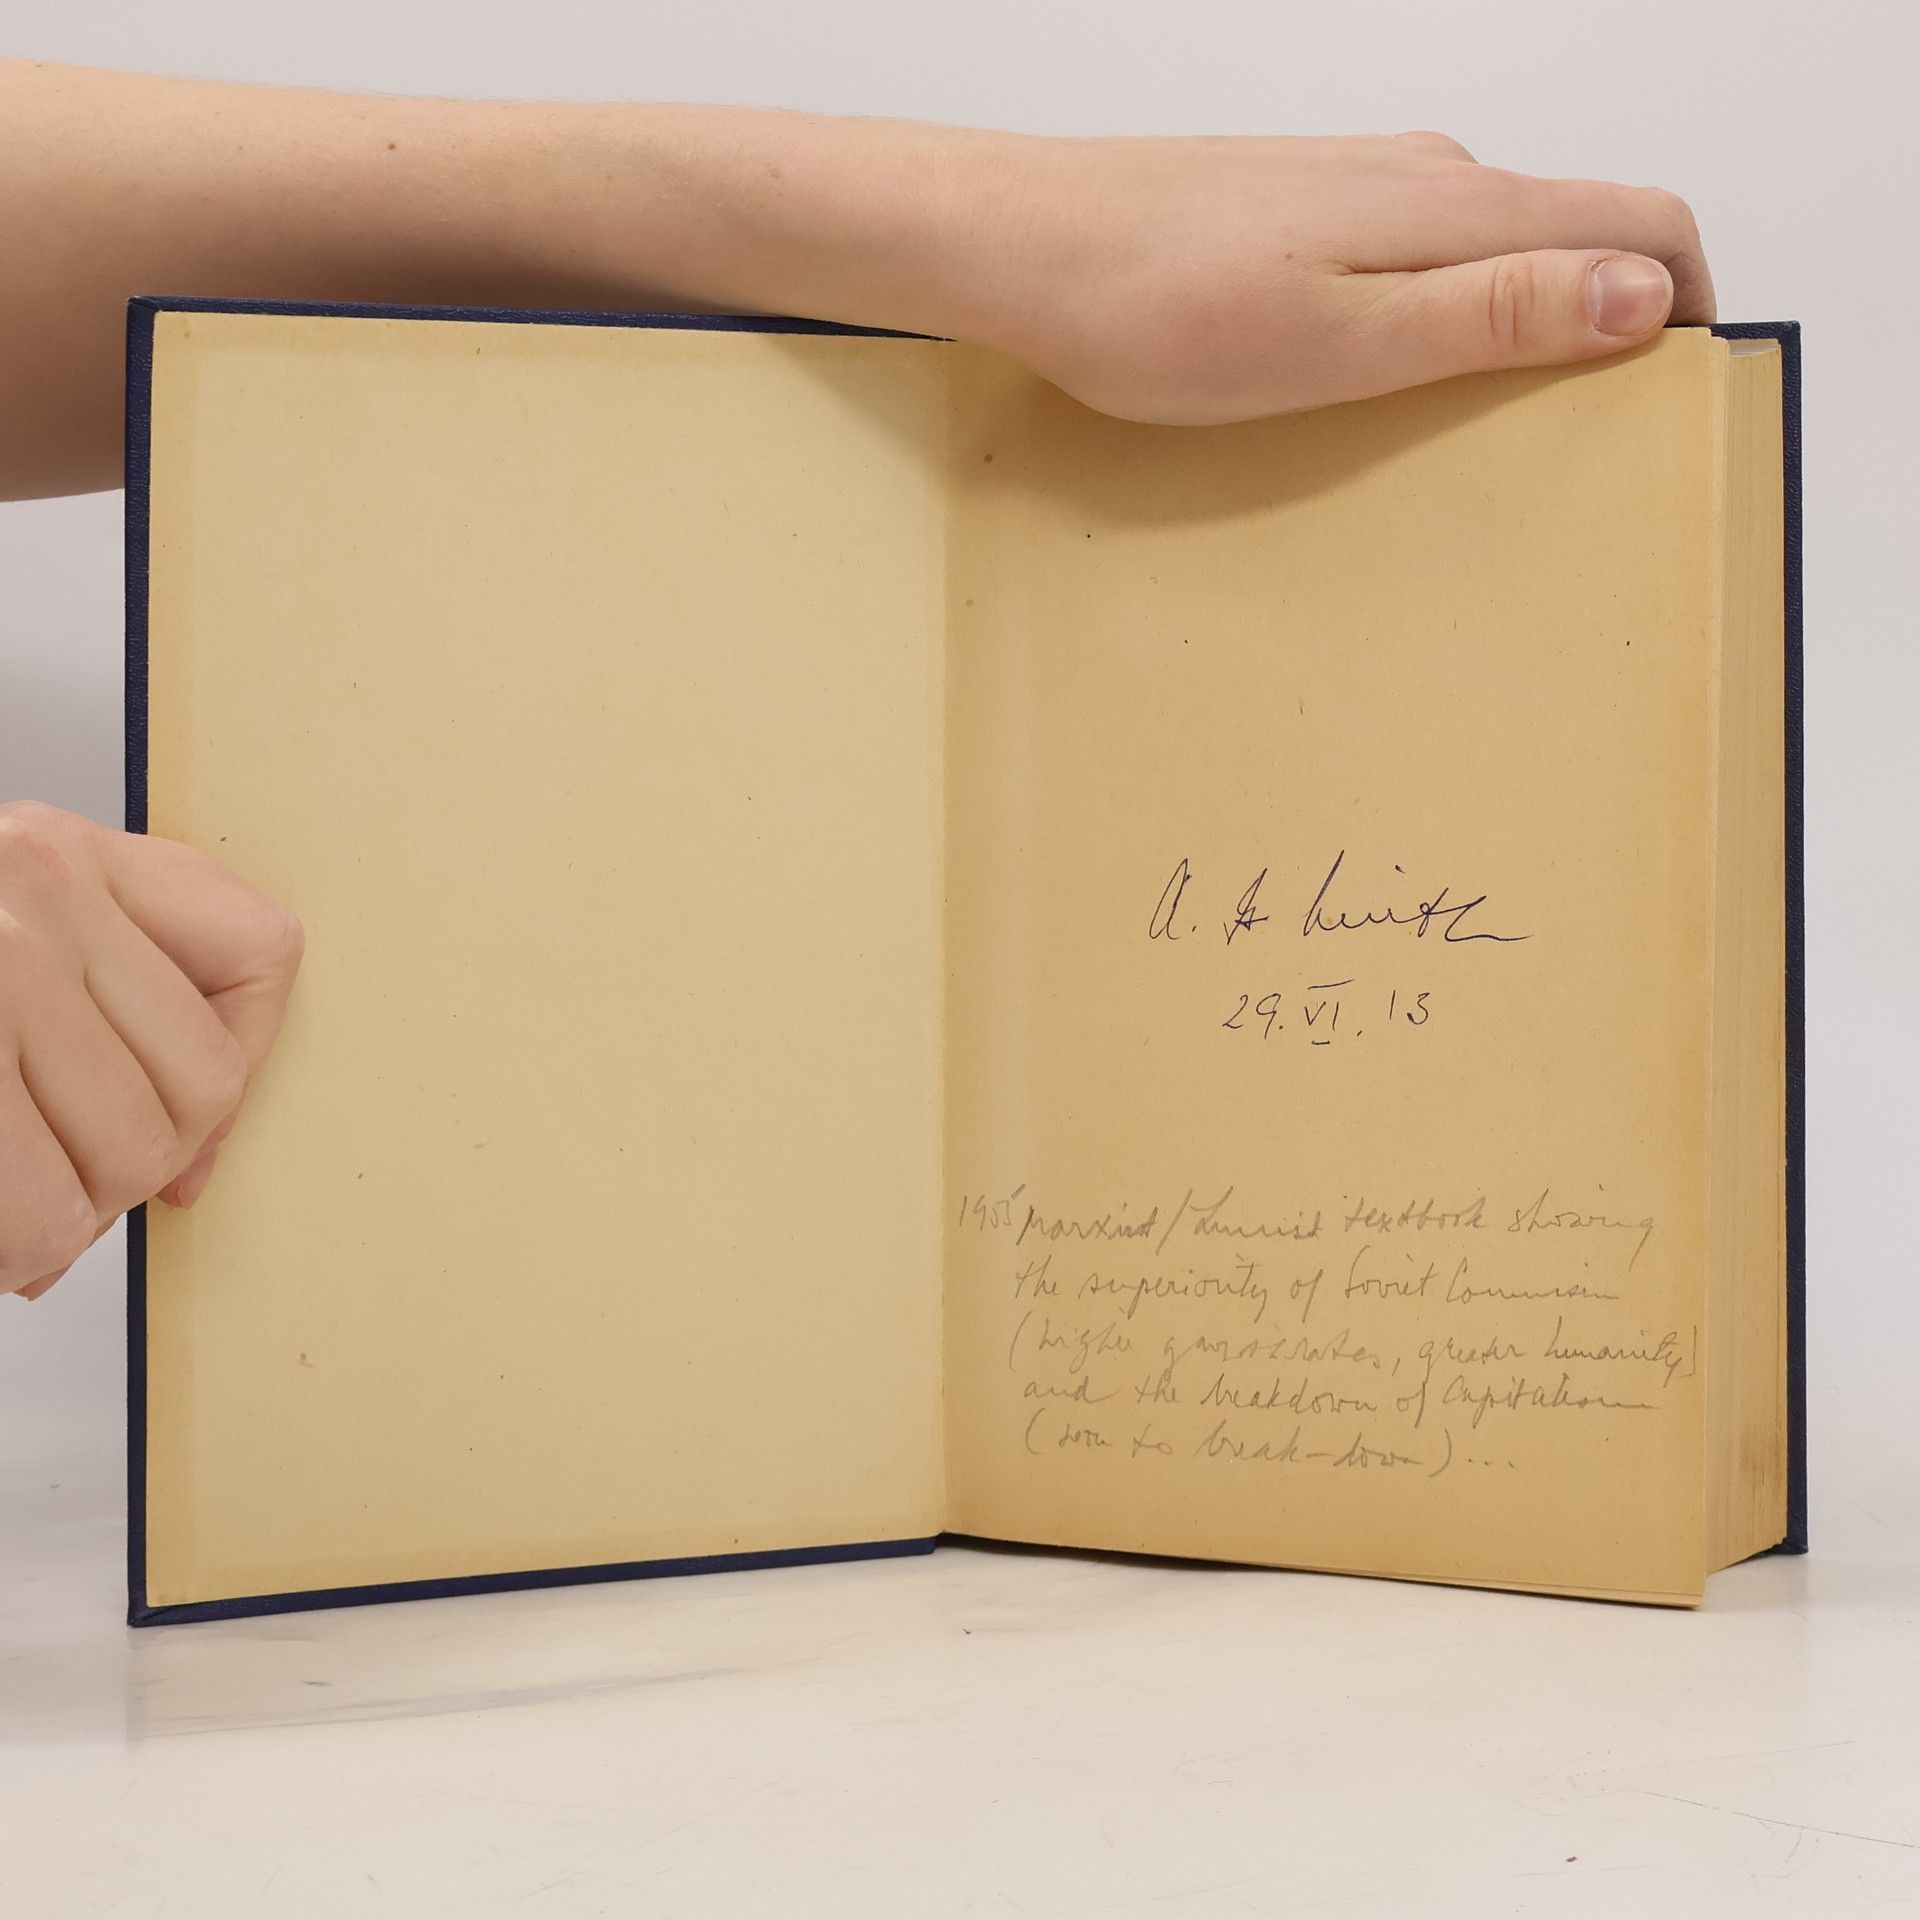 A. H
29. VI. 13
1955 Marxist/Leninist textbook showing
the superiority of Soviet Communism
(higher growth rates, greater humanity)
and the breakdown of Capitalism
(soon to break-down) ...